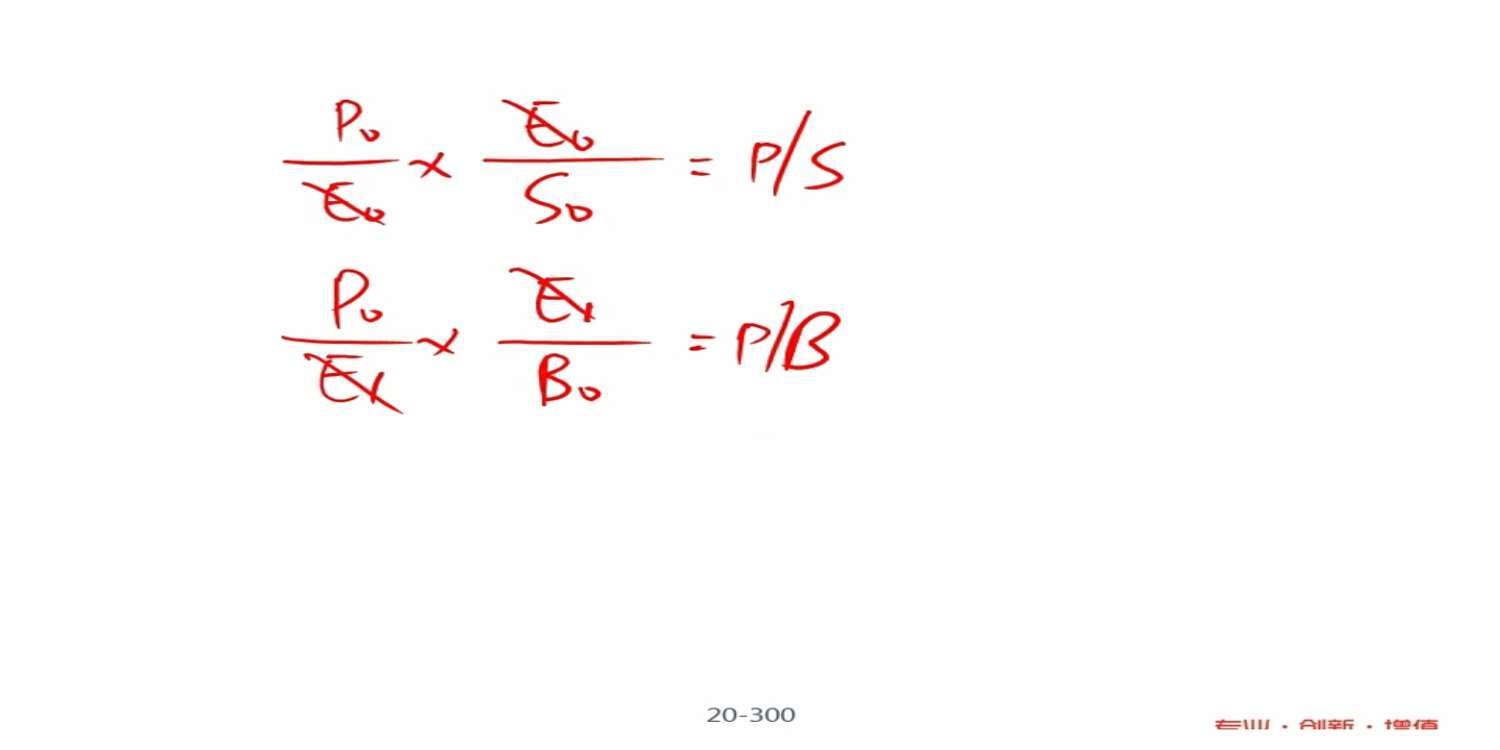 P₀/E₀ × E₀/S₀ = P/S
P₀/E₁ × E₁/B₀ = P/B
20-300
专业·创新·增值